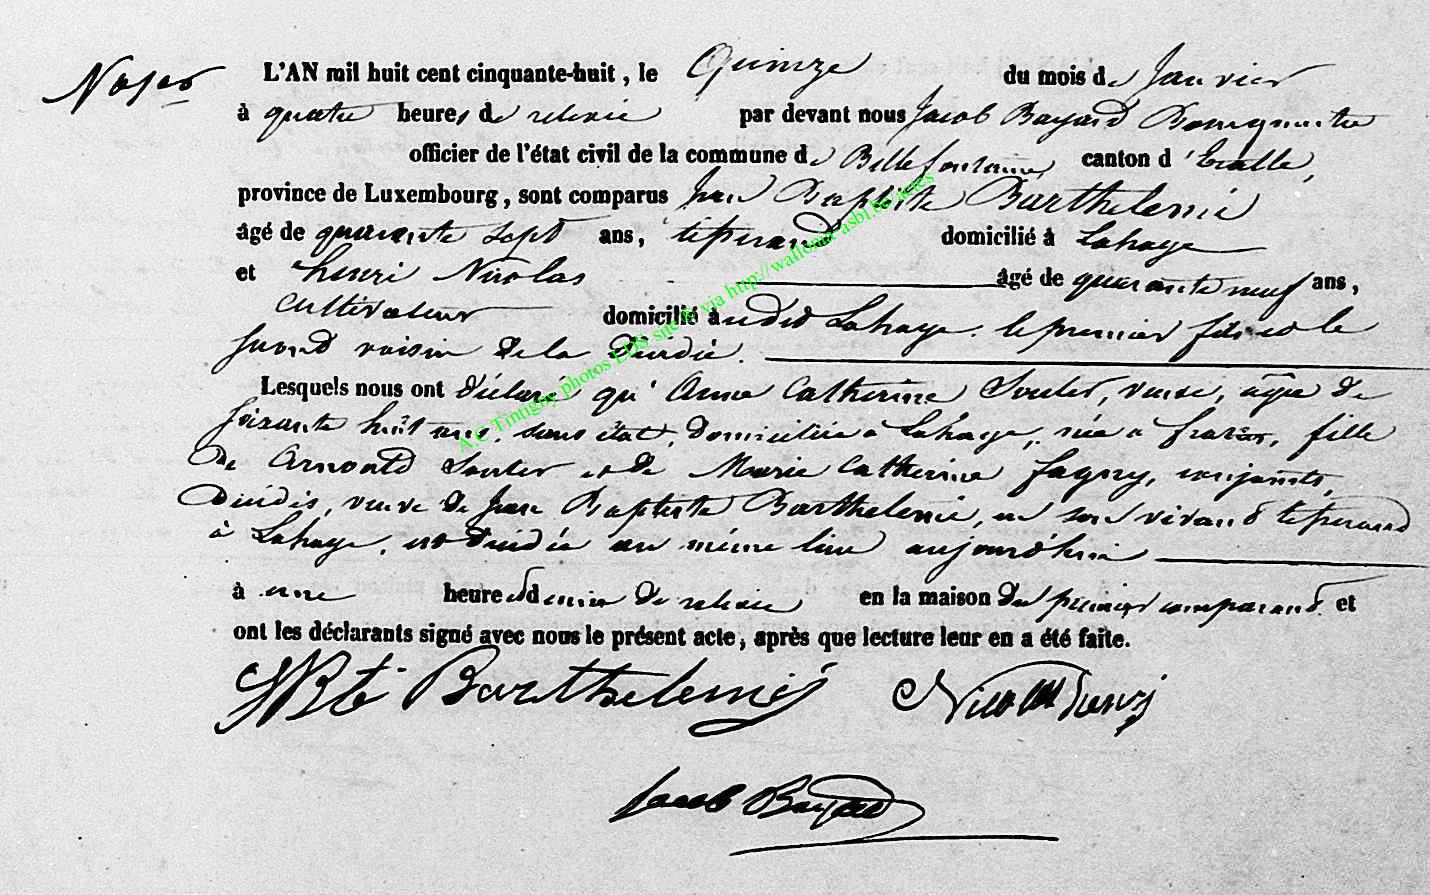 L'AN mil huit cent cinquante-huit, le Quinze du mois de Janvier
à quatre heures de relevée par devant nous Jacob Bayard Bourgmestre
officier de l'état civil de la commune de Bellefontaine, canton d'Etalle,
province de Luxembourg, sont comparus Jean Baptiste Barthelemi
âgé de quarante sept ans, tisserand domicilié à Lahage
et henri Nicolas âgé de quarante neuf ans,
cultivateur domicilié à udit Lahage. le premier fils et le
second voisin de la décédée.
Lesquels nous ont déclaré qu'Anne Catherine Souler, veuve, âgée de
soixante huit ans, sans état, domiciliée à Lahage, née à fille
de Arnould Souler et de Marie Catherine fagny, conjoints,
décédés, veuve de Jean Baptiste Barthelemi, en son vivant tisserand
à Lahage, est décédée au même lieu aujourd'hui
à une heure et demie de relevée en la maison du premier comparant et
ont les déclarants signé avec nous le présent acte, après que lecture leur en a été faite.
JBte Barthelemi Nicolas henri
Jacob Bayard
A.C Tintigny photos LDS site & via http://wallonia-asbl.be/actes